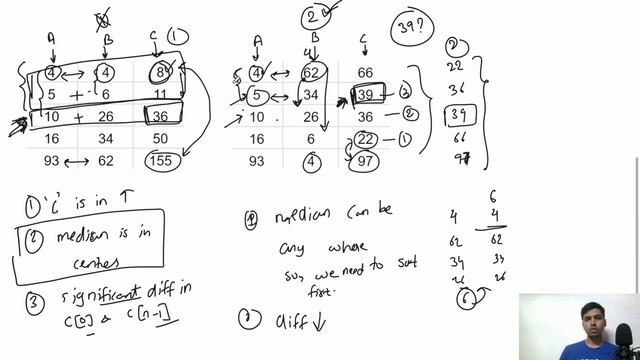 A B C ①
4 ↔ 4 8
5 + 6 11
10 + 26 36
16 34 50
93 ↔ 62 155
① 'c' is in ↑
② median is in
centre
③ significant diff in
C[0] & C[n-1]
②
39?
A B C
4 ↔ 62 66
5 34 39 — ③
10 26 36 — ②
16 6 22 — ①
93 4 97
②
22
36
39
66
97
① median can be
any where
so, we need to sort
first.
② diff ↓
6
4 4
62 62
34 34
26 26
6